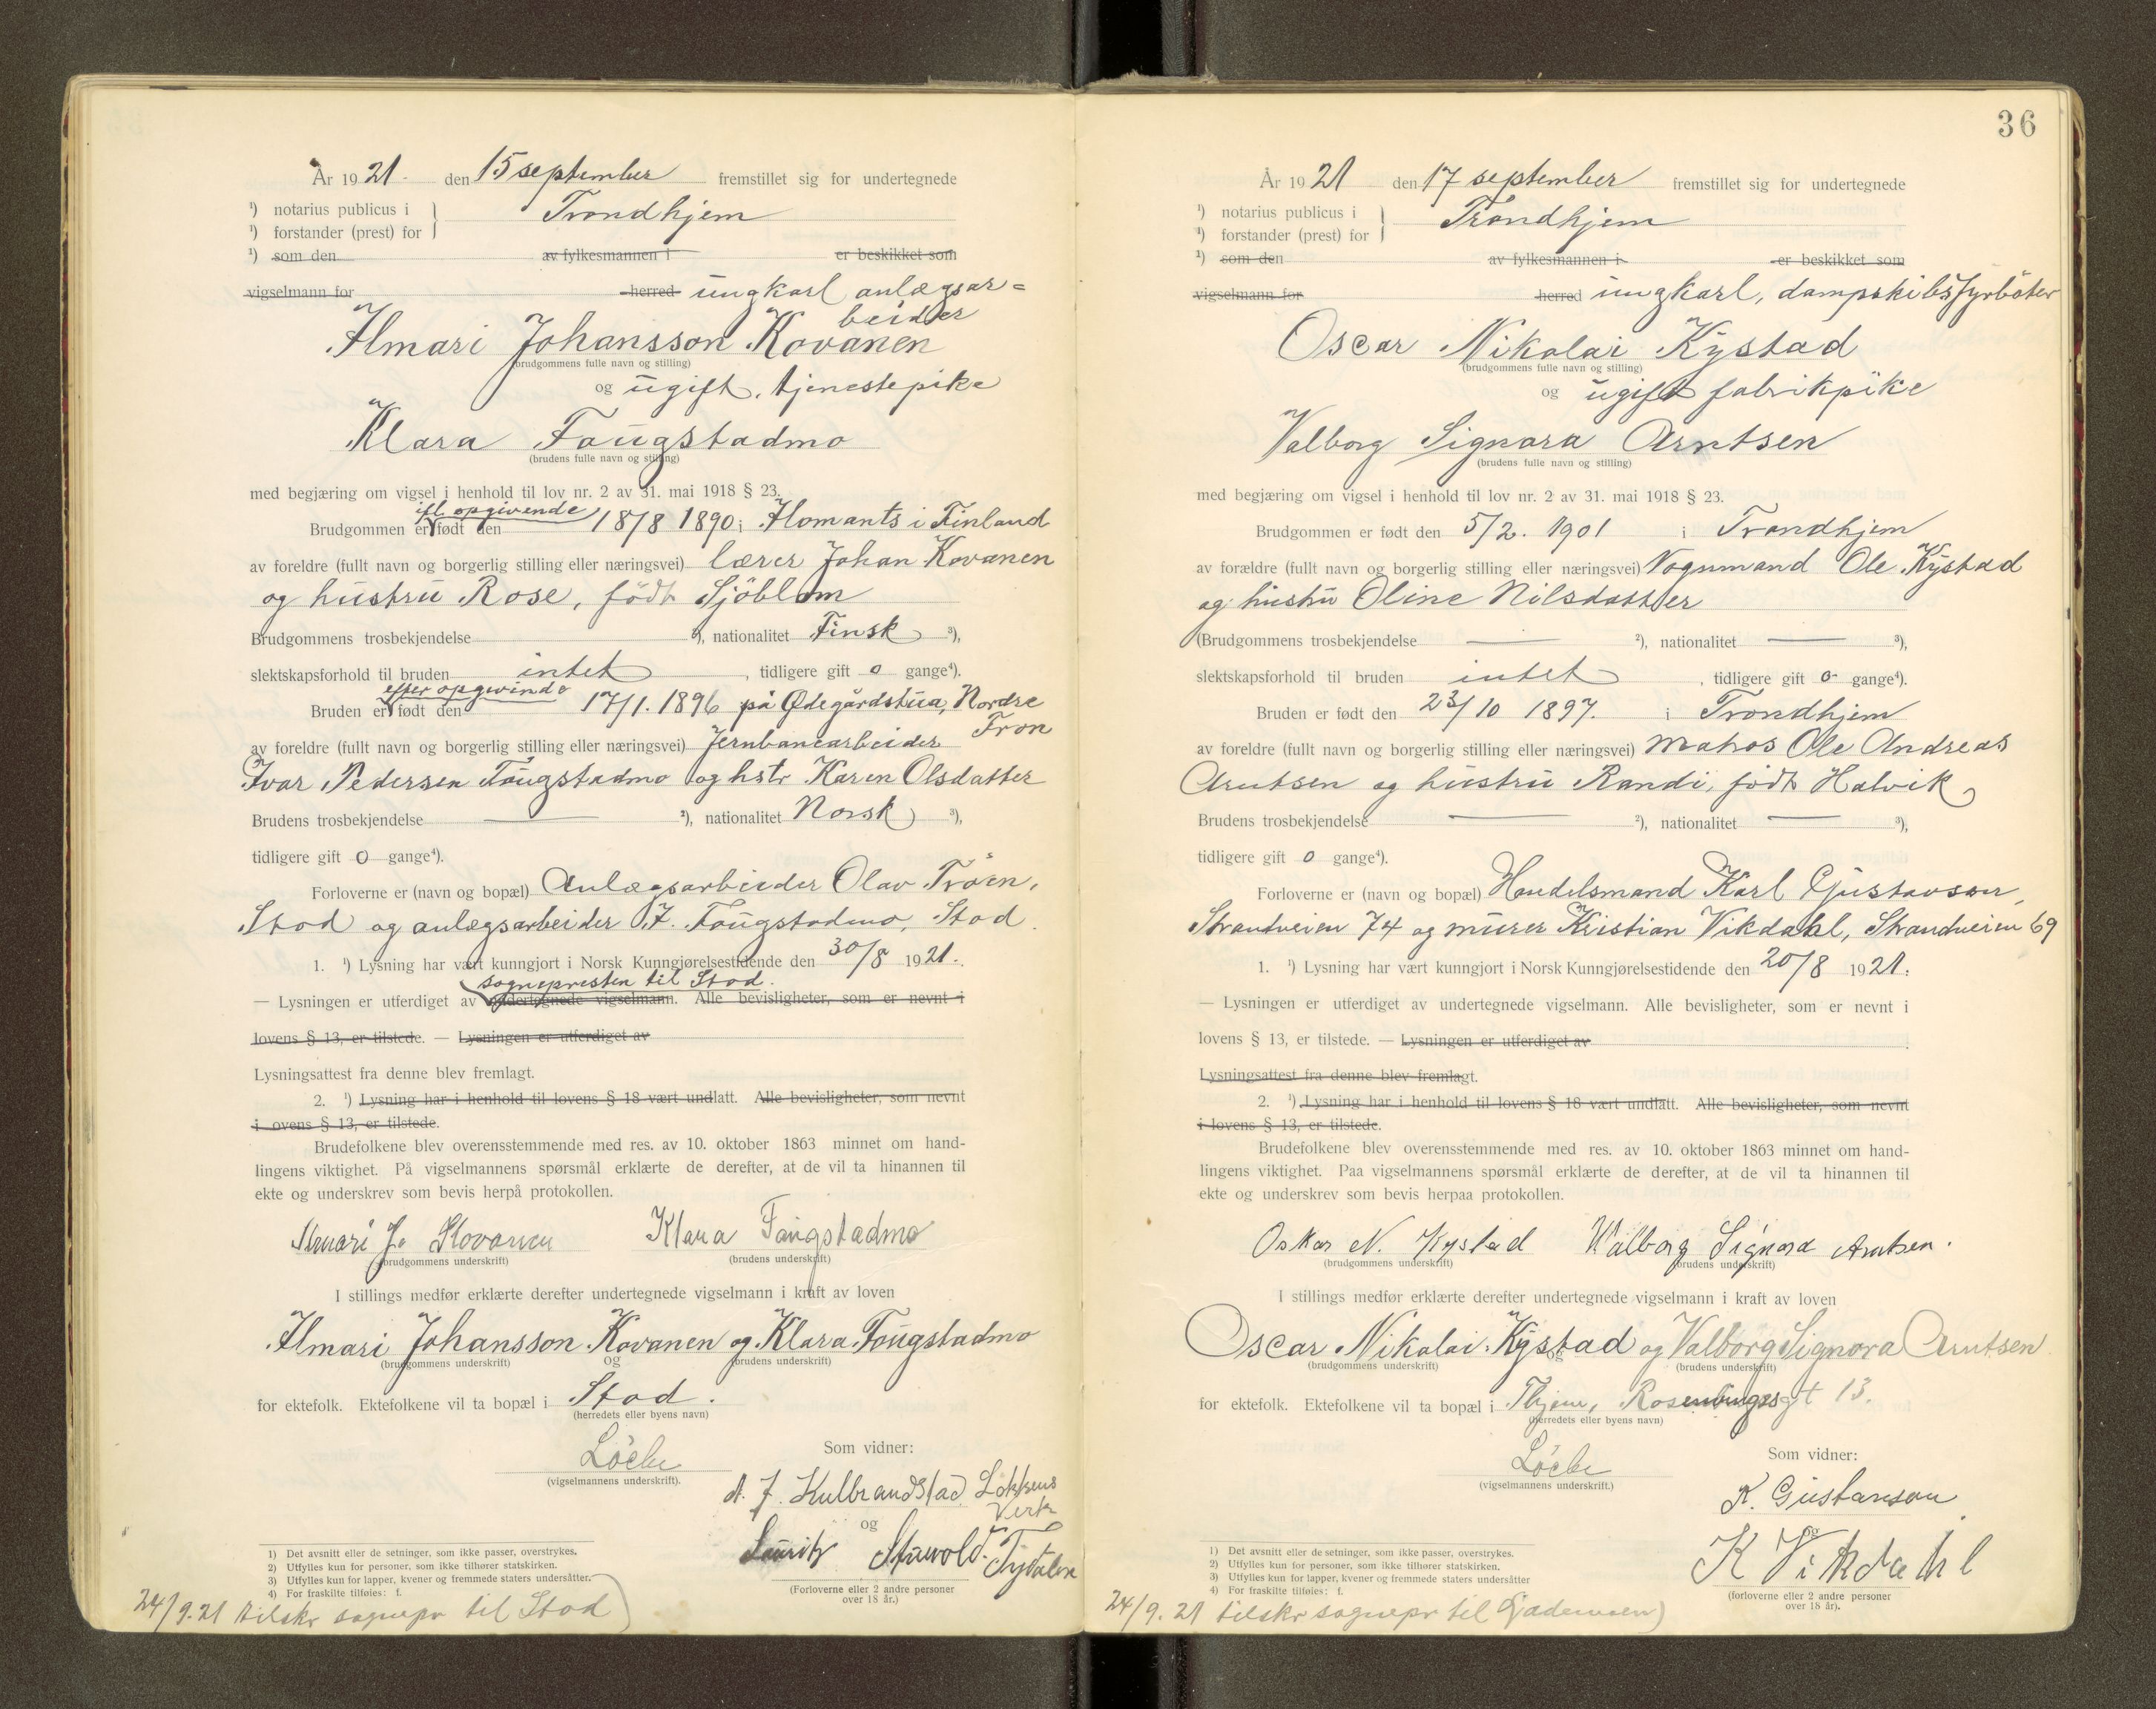 År 1921. den 15 september fremstillet sig for undertegnede
¹) notarius publicus i
¹) forstander (prest) for
} Trondhjem
¹) som den av fylkesmannen i er beskikket som
vigselmann for herred ungkarl anlægsar=
beider
Ilmari Johansson Kovanen
(brudgommens fulle navn og stilling)
og ugift, tjenestepike
Klara Faugstadmo
(brudens fulle navn og stilling)
med begjæring om vigsel i henhold til lov nr. 2 av 31. mai 1918 § 23.
ifl. opgivende
Brudgommen er født den 18/8 1890 i Ilomants i Finland
av foreldre (fullt navn og borgerlig stilling eller næringsvei) lærer Johan Kovanen
og hustru Rose, født Sjöblom
Brudgommens trosbekjendelse ²), nationalitet Finsk ³),
slektskapsforhold til bruden intet, tidligere gift 0 gange⁴).
efter opgivende
Bruden er født den 17/1. 1896 på Ødegårdstua, Nordre
Fron
av foreldre (fullt navn og borgerlig stilling eller næringsvei) Jernbanearbeider
Ivar Pedersen Faugstadmo og hstr Karen Olsdatter
Brudens trosbekjendelse — ²), nationalitet Norsk ³),
tidligere gift 0 gange⁴).
Forloverne er (navn og bopæl) Anlægsarbeider Olav Trøen,
Stod og anlægsarbeider I. Faugstadmo, Stod.
1. ¹) Lysning har vært kunngjort i Norsk Kunngjørelsestidende den 30/8 1921.
sognepresten til Stod.
— Lysningen er utferdiget av undertegnede vigselmann. Alle bevisligheter, som er nevnt i
lovens § 13, er tilstede. — Lysningen er utferdiget av
Lysningsattest fra denne blev fremlagt.
2. ¹) Lysning har i henhold til lovens § 18 vært undlatt. Alle bevisligheter, som nevnt
i ovens § 13, er tilstede.
Brudefolkene blev overensstemmende med res. av 10. oktober 1863 minnet om hand-
lingens viktighet. På vigselmannens spørsmål erklærte de derefter, at de vil ta hinannen til
ekte og underskrev som bevis herpå protokollen.
Ilmari J. Kovanen Klara Faugstadmo
(brudgommens underskrift) (brudens underskrift)
I stillings medfør erklærte derefter undertegnede vigselmann i kraft av loven
Ilmari Johansson Kovanen og Klara Faugstadmo
(brudgommens underskrift) og (brudens underskrift)
for ektefolk. Ektefolkene vil ta bopæl i Stod.
(herredets eller byens navn)
Som vidner:
(vigselmannens underskrift).
A. J. Kulbrandstad Løkkens
Verk
og
Lauritz Stuevold. Tydalen
(Forloverne eller 2 andre personer
over 18 år.)
1) Det avsnitt eller de setninger, som ikke passer, overstrykes.
2) Utfylles kun for personer, som ikke tilhører statskirken.
3) Utfylles kun for lapper, kvener og fremmede staters undersåtter.
4) For fraskilte tilføies: f.
24/9.21 tilskr sognepr til Stod)
36
År 1921 den 17 september fremstillet sig for undertegnede
¹) notarius publicus i
¹) forstander (prest) for
} Trondhjem
¹) som den av fylkesmannen i er beskikket som
vigselmann for herred ungkarl, dampskibsfyrböter
Oscar Nikolai Kystad
(brudgommens fulle navn og stilling)
og ugift fabrikpike
Valborg Signora Arntsen
(brudens fulle navn og stilling)
med begjæring om vigsel i henhold til lov nr. 2 av 31. mai 1918 § 23.
Brudgommen er født den 5/2. 1901 i Trondhjem
av forældre (fullt navn og borgerlig stilling eller næringsvei) Vognmand Ole Kystad
og hustru Oline Nilsdatter
(Brudgommens trosbekjendelse — ²), nationalitet — ³),
slektskapsforhold til bruden intet, tidligere gift 0 gange⁴).
Bruden er født den 23/10 1897. i Trondhjem
av foreldre (fullt navn og borgerlig stilling eller næringsvei) Matros Ole Andreas
Arntsen og hustru Randi, født Halvik
Brudens trosbekjendelse — ²), nationalitet — ³),
tidligere gift 0 gange⁴).
Forloverne er (navn og bopæl) Handelsmand Karl Gustavson,
Strandveien 74 og murer Kristian Vikdahl, Strandveien 69
1. ¹) Lysning har vært kunngjort i Norsk Kunngjørelsestidende den 20/8 1921.
— Lysningen er utferdiget av undertegnede vigselmann. Alle bevisligheter, som er nevnt i
lovens § 13, er tilstede. — Lysningen er utferdiget av
Lysningsattest fra denne blev fremlagt.
2. ¹) Lysning har i henhold til lovens § 18 vært undlatt. Alle bevisligheter, som nevnt
i lovens § 13, er tilstede.
Brudefolkene blev overensstemmende med res. av 10. oktober 1863 minnet om hand-
lingens viktighet. Paa vigselmannens spørsmål erklærte de derefter, at de vil ta hinannen til
ekte og underskrev som bevis herpaa protokollen.
Oskar N. Kystad Walborg Signora Arntsen.
(brudgommens underskrift) (brudens underskrift)
I stillings medfør erklærte derefter undertegnede vigselmann i kraft av loven
Oscar Nikolai Kystad og Valborg Signora Arntsen
(brudgommens underskrift) og (brudens underskrift)
for ektefolk. Ektefolkene vil ta bopæl i Thjem, Rosenborgsgt 13.
(herredets eller byens navn)
Som vidner:
(vigselmannens underskrift.)
K. Gustavson
og
K Vikdahl
(forloverne eller 2 andre personer
over 18 år).
1) Det avsnitt eller de setninger, som ikke passer, overstrykes.
2) Utfylles kun for personer, som ikke tilhører statskirken.
3) Utfylles kun for lapper, kvener og fremmede staters undersåtter
4) For fraskilte tilføies: f.
24/9. 21 tilskr sognepr til Lademoen)